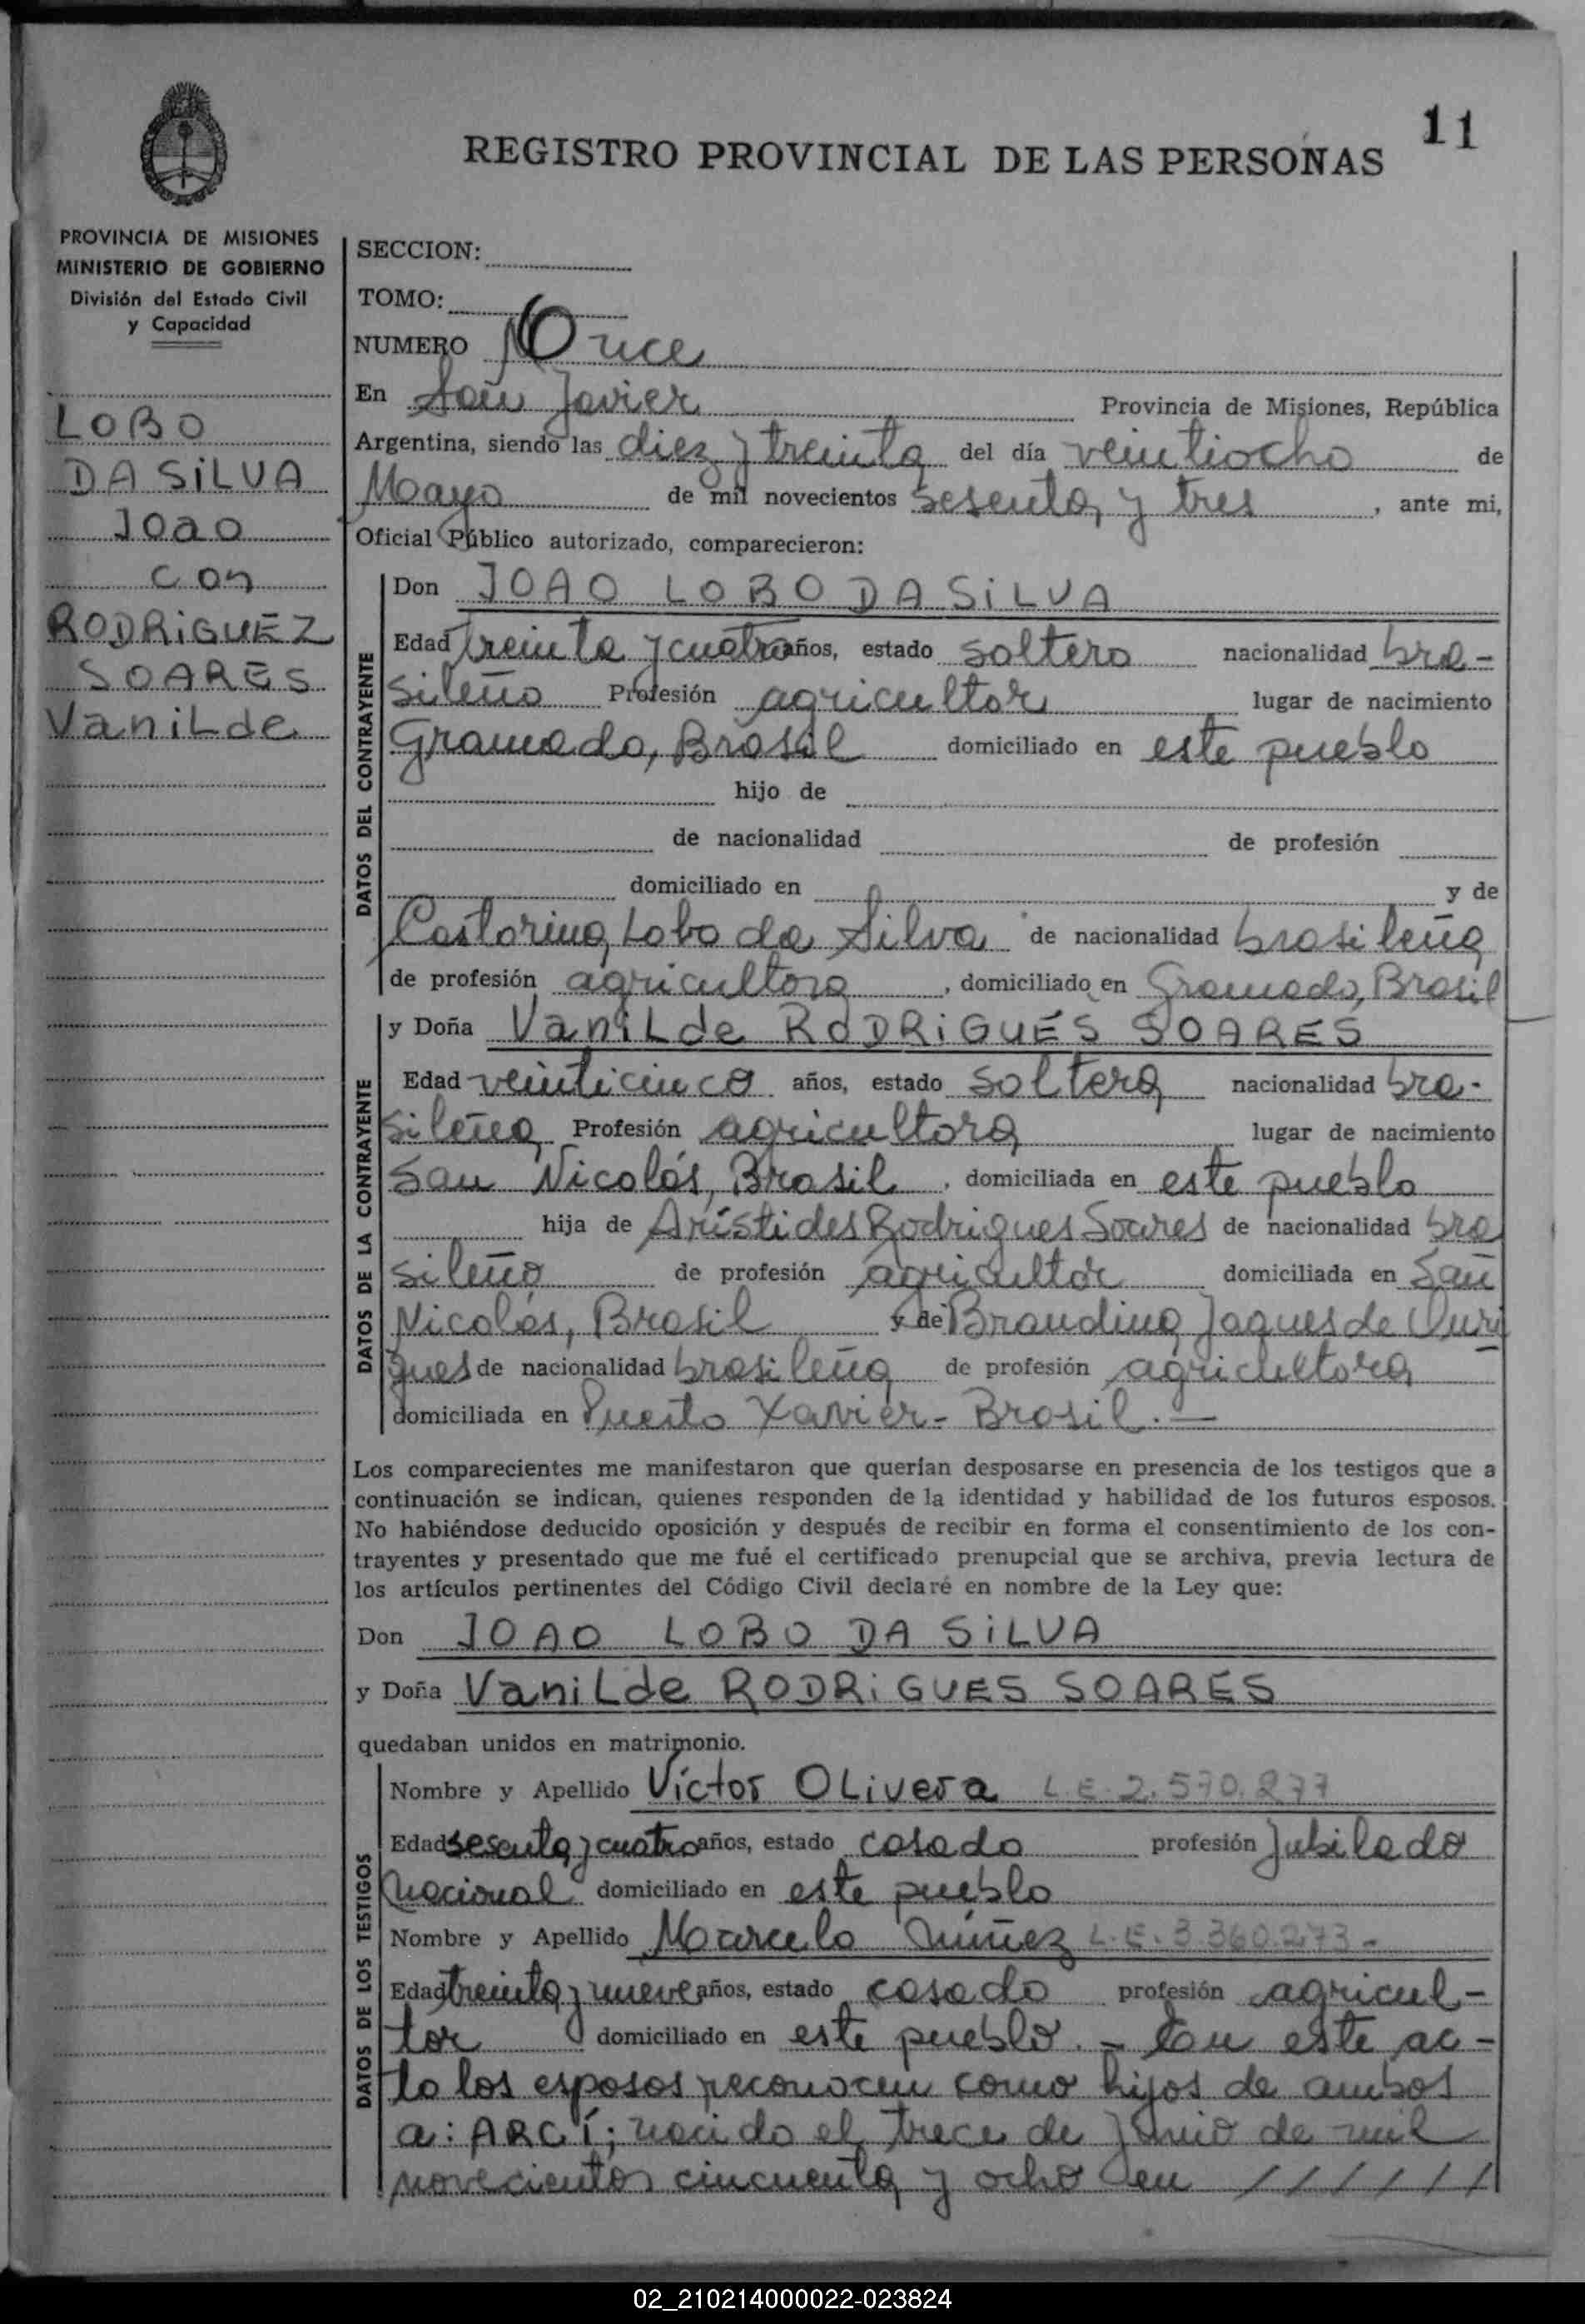 11
REGISTRO PROVINCIAL DE LAS PERSONAS
PROVINCIA DE MISIONES
MINISTERIO DE GOBIERNO
División del Estado Civil
y Capacidad
LOBO
DA SILVA
Joao
con
RODRIGUEZ
SOARES
Vanilde
SECCION:
TOMO:
NUMERO Once
En San Javier Provincia de Misiones, República
Argentina, siendo las diez y treinta del día veintiocho de
Mayo de mil novecientos sesenta y tres, ante mi,
Oficial Público autorizado, comparecieron:
DATOS DEL CONTRAYENTE
Don JOAO LOBO DA SILVA
Edad treinta y cuatro años, estado soltero nacionalidad bra-
sileño Profesión agricultor lugar de nacimiento
Gramado, Brasil domiciliado en este pueblo
hijo de
de nacionalidad de profesión
domiciliado en y de
Castorina Lobo da Silva de nacionalidad brasileña
de profesión agricultora, domiciliado en Gramado, Brasil
DATOS DE LA CONTRAYENTE
y Doña Vanilde RODRIGUES SOARES
Edad veinticinco años, estado soltera nacionalidad bra-
sileña Profesión agricultora lugar de nacimiento
San Nicolás, Brasil, domiciliada en este pueblo
hija de Arístides Rodrigues Soares de nacionalidad bra
sileño de profesión agricultor domiciliada en San
Nicolás, Brasil y de Brandina Jaques de
de nacionalidad brasileña de profesión agricultora
domiciliada en Puerto Xavier - Brasil.—
Los comparecientes me manifestaron que querían desposarse en presencia de los testigos que a
continuación se indican, quienes responden de la identidad y habilidad de los futuros esposos.
No habiéndose deducido oposición y después de recibir en forma el consentimiento de los con-
trayentes y presentado que me fué el certificado prenupcial que se archiva, previa lectura de
los artículos pertinentes del Código Civil declaré en nombre de la Ley que:
Don JOAO LOBO DA SILVA
y Doña Vanilde RODRIGUES SOARES
quedaban unidos en matrimonio.
DATOS DE LOS TESTIGOS
Nombre y Apellido Víctor Olivera L.E. 2.570.277
Edad sesenta y cuatro años, estado casado profesión Jubilado
Nacional domiciliado en este pueblo
Nombre y Apellido Marcelo Núñez L.E. 3.360.273-
Edad treinta y nueve años, estado casado profesión agricul-
tor domiciliado en este pueblo.- En este ac-
to los esposos reconocen como hijos de ambos
a: ARCÍ; nacido el trece de Junio de mil
novecientos cincuenta y ocho en //////
02_210214000022-023824